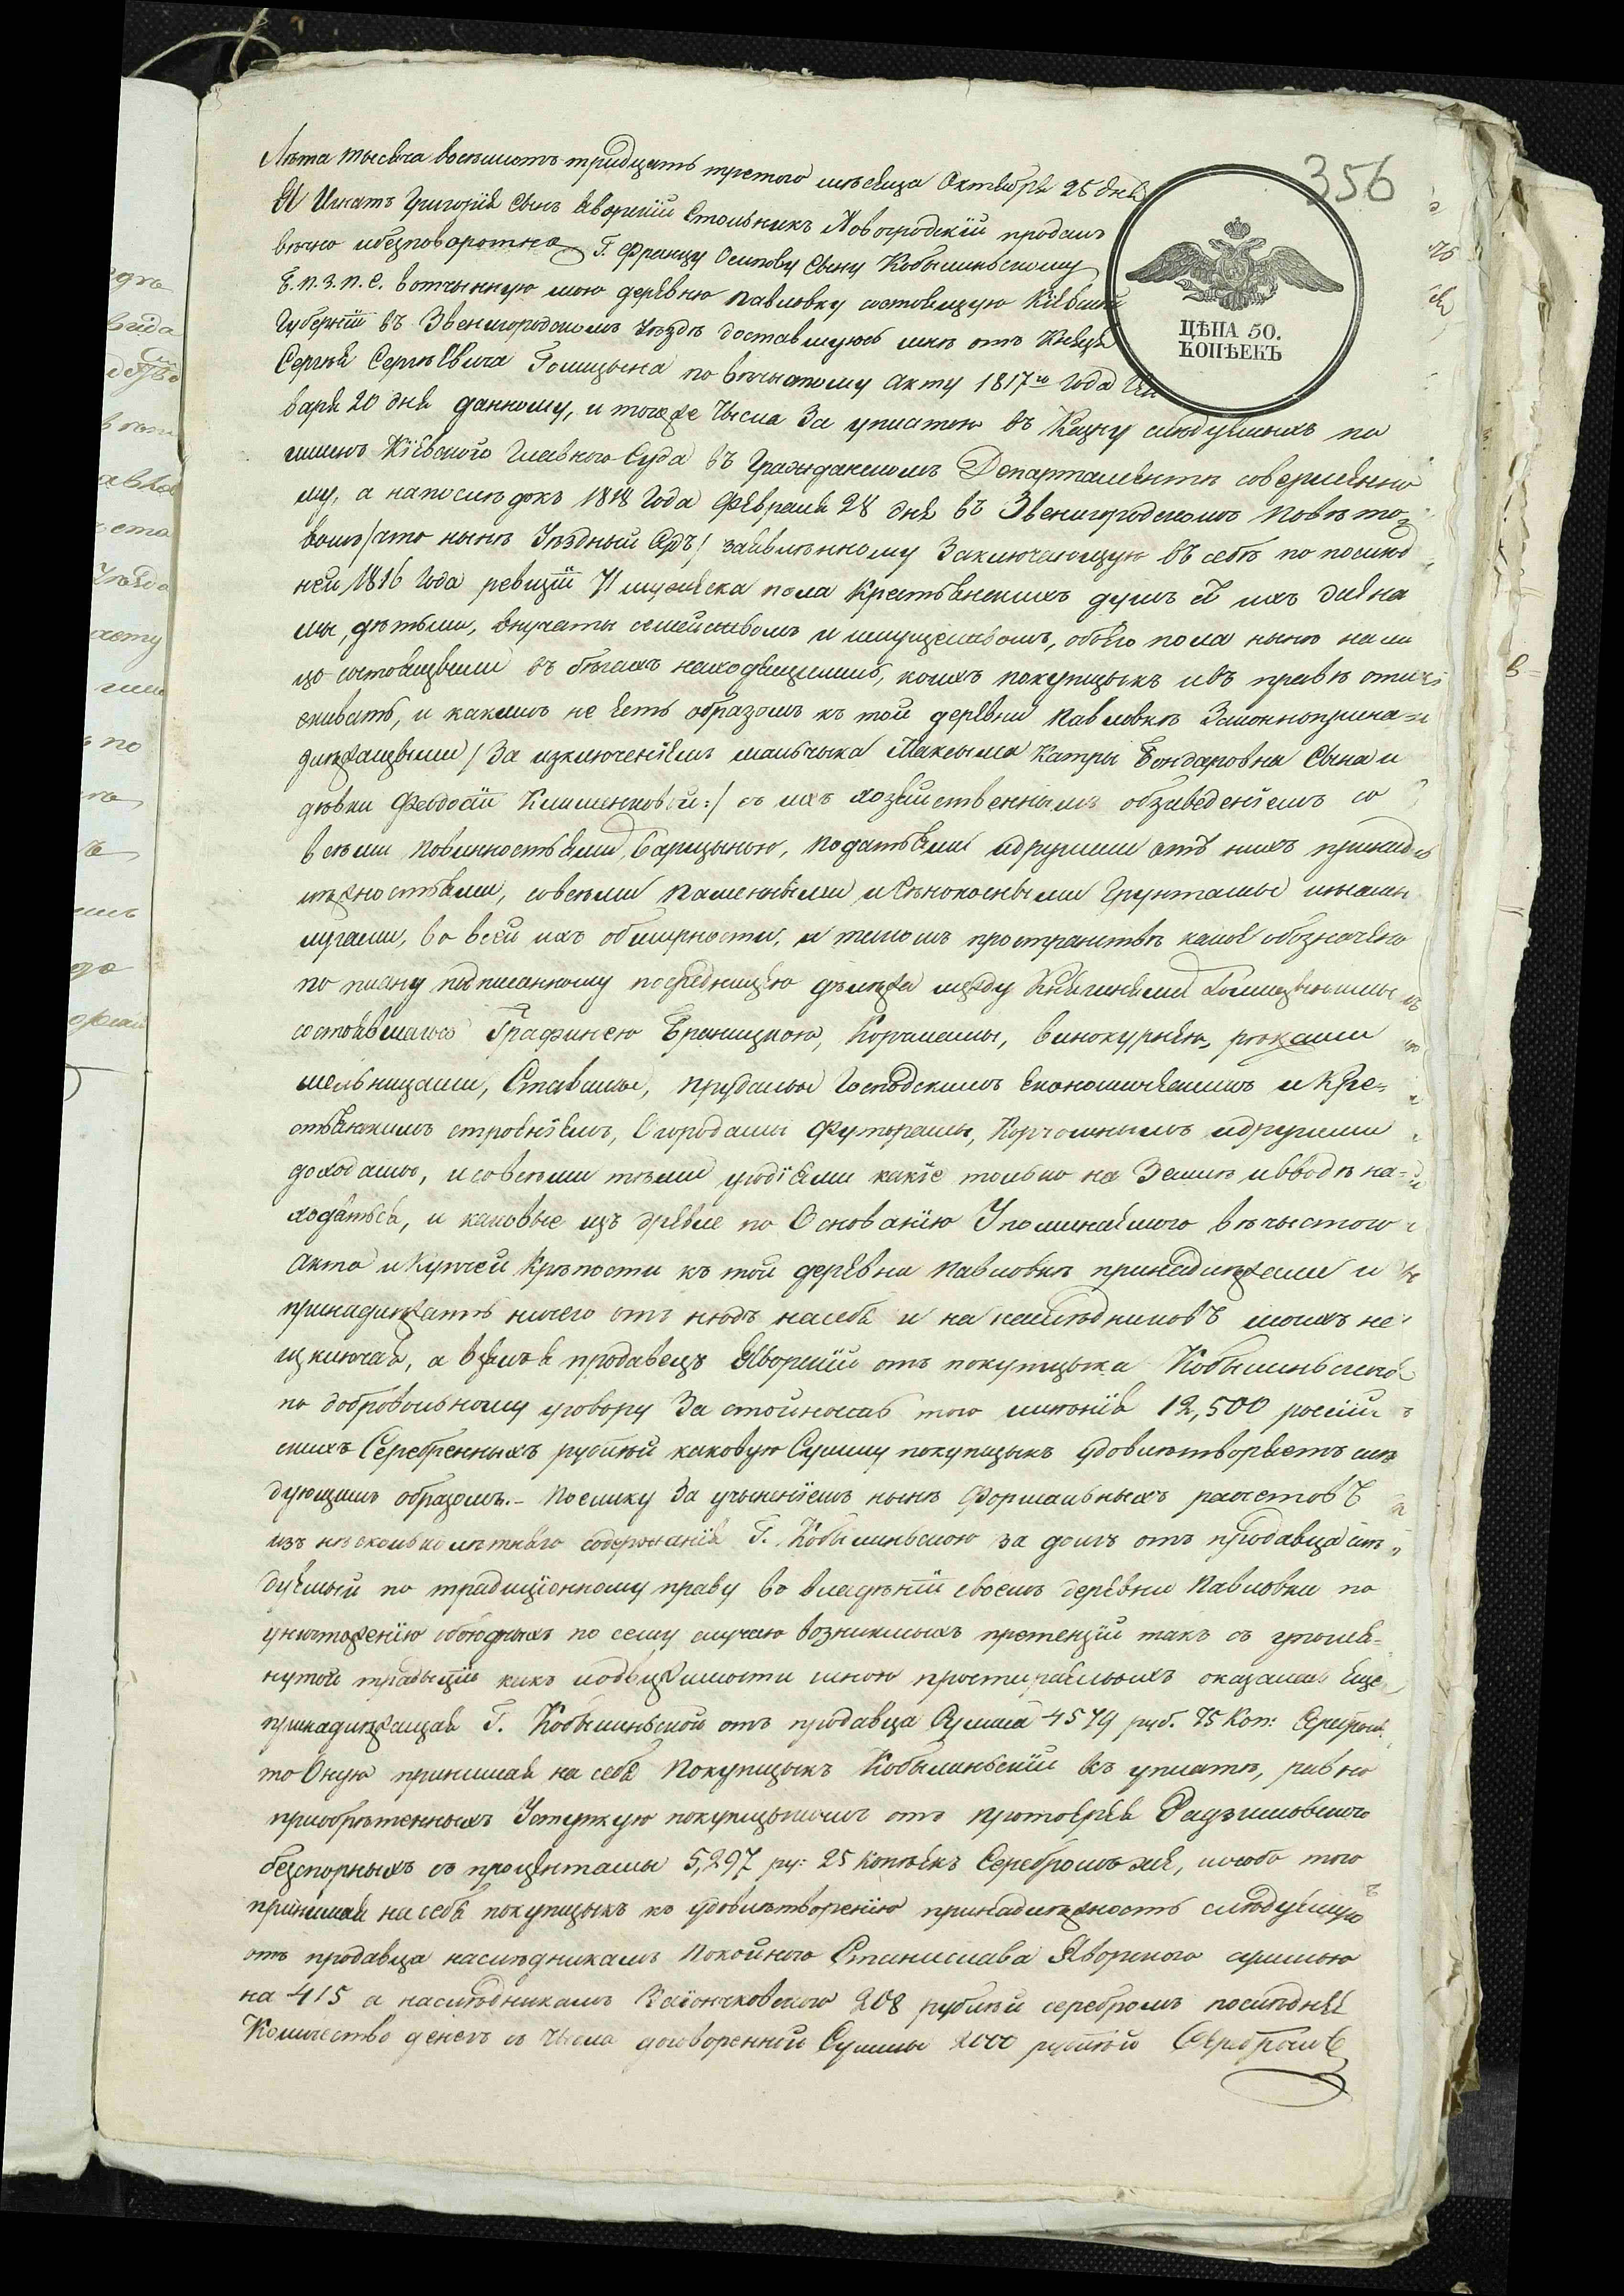 356
ЦѢНА 50.
КОПѢЕКЪ
Лѣта тысеча восемсотъ тридцать третого мѣсяца Октября 25 дня
Я Игнатъ Григорія Сынъ Яворскій Стольникъ Новогродскій продалъ
вѣчно и безповоротно Г. Францу Осипову Сыну Кобылинскому
Е.п.з.п.с. вотчинную мою деревню Павловку состоящую Кіевской
Губерніи въ Звенигородскомъ Уѣздѣ доставшуюсь мнѣ отъ Князя
Сергѣя Сергѣевича Голицына по вѣчыстому акту 1817го года Ген
варя 20 дня данному, и тогоже Числа За уплатою въ Казну слѣдуемыхъ по
шлинъ Кіевского Главного Суда въ Гражданскомъ Департаментѣ совершенно
му, а напослѣдокъ 1818 Года Февраля 28 дня въ Звенигородскомъ Повѣто-
вомъ /что нынѣ Уѣздный Судъ/ заявленному Заключающую въ себѣ по послѣд
ней 1816 Года ревизіи 71 мужеска пола Крестьянскихъ душъ съ ихъ жена
мы, дѣтьми, внучаты семействомъ и имуществомъ, обоего пола нынѣ на ли
цо состоящыми въ бѣгахъ находящимись, коихъ покупщыкъ и въ правѣ отыс
кивать, и какимъ не есть образомъ къ той деревни Павловкѣ Законнопрына
длежащыми /За изключеніемъ мальчыка Максыма Катры Бондаровны Сына и
дѣвки Феодосіи Клименковой:/ съ ихъ хозяйственнымъ обзаведеніемъ со
всѣми повинностьями, барщыною, податьями и другими отъ нихъ принад
лежностьями, совсѣми пашенными и сѣнокосными Грунтамы
лугами, во всей ихъ обширности, и такомъ пространствѣ какое обозначено
по плану подписанному посредницею дѣлежа между Князьями Голицынымы
состоявшагось Графинею Браницкою, Корчмамы, винокурнею, рѣками
мельницами, Ставамы, прудамы Господскимъ экономическимъ и Кре-
стьянскимъ строеніемъ, Огородамы Футорамы, Корчомнымъ и другими
доходамы, и совсѣми тѣми угодіями какіе только на Землѣ и вводѣ на-
ходяться, и каковые изъ древле по Основанію Упоминаемого вѣчыстого
Акта и Купчей крѣпости къ той деревни Павловкѣ принадлежали и
принадлежатъ ничего отъ нюдъ на себя и на наслѣдниковъ моихъ не
изключая, а взялъ я продавецъ Яворскій отъ покупщыка Кобылинского
по добровольному уговору За стойность того имѣнія 12,500 россій
скихъ Серебренныхъ рублей каковую Сумму покупщыкъ удовлетворяетъ слѣ
дующимъ образомъ.- Поелику За учыненіемъ нынѣ формальныхъ расчетовъ
изъ нѣсколько лѣтняго содержанія Г. Кобылинскою за долгъ отъ продавца слѣ
дуемый по традиціонному праву во владѣніи своемъ деревни Павловки по
уничтоженію обоюдныхъ по сему случаю возникшыхъ претензій такъ съ упомя-
нутой традыціи какъ и недвижимости мною простираемыхъ оказалась Еще
принадлежащая Г. Кобылинской отъ продавца Сумма 4579 руб. 75 Коп: Сребром
то Оную принимая на себя Покупщыкъ Кобылинскій къ уплатѣ, равно
приобрѣтенныхъ Уступкую покупщыкомъ отъ протоерея Радзимовского
безспорныхъ съ процентамы 5,297 ру: 25 копѣекъ Серебромъ же, и особо того
принимая на себя покупщыкъ къ удовлетворенію принадлежность слѣдуемую
отъ продавца наслѣдникамъ Покойного Станислава Яворского сумою
на 415 а наслѣдникамъ Заіончковского 208 рублей серебромъ послѣднее
Количество денегъ съ Числа договоренной Суммы 2000 рублей Серебромъ